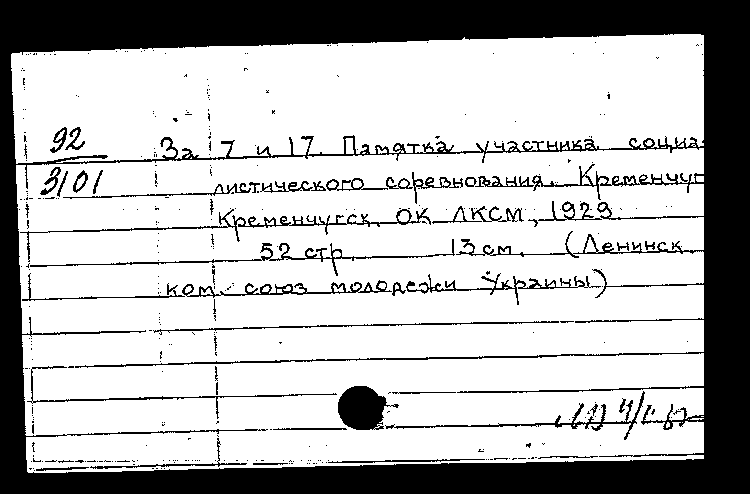 92
3101
За 7 и 17. Памятка участника социа-
листического соревнования. Кременчуг
Кременчугск. ОК ЛКСМ, 1929.
52 стр. 13 см. (Ленинск.
ком. союз молодежи Украины)